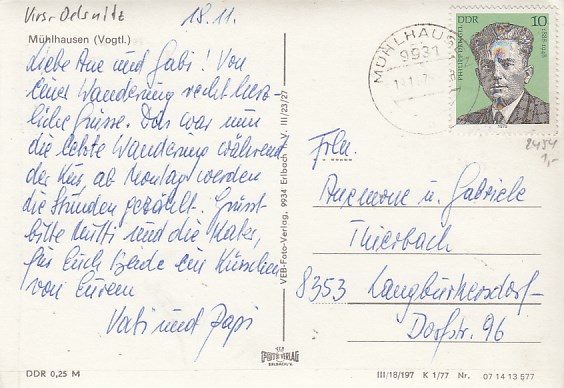 Krs. Oelsnitz 18.11.
Mühlhausen (Vogtl.)
Liebe Ane und Gabi! Von
einer Wanderung recht herz-
liche Grüsse. Das war nun
die letzte Wanderung während
der Kur, ab Montag werden
die Stunden gezählt. Grüsst
bitte Mutti und die Kater,
für Euch Beide ein Küsschen
von Eurem
Vati und Papi
DDR 0,25 M
VEB-Foto-Verlag, 9934 Erlbach V. III/23/27
FOTO-VERLAG
ERLBACH/V.
MÜHLHAUS
9931
DDR 10
PHILIPP DENGEL
1888-1948
1979
2454
1,-
Frln.
Anemone u. Gabriele
Thierbach
8353 Langburkersdorf-
Dorfstr. 96
III/18/197 K 1/77 Nr. 07 14 13 577